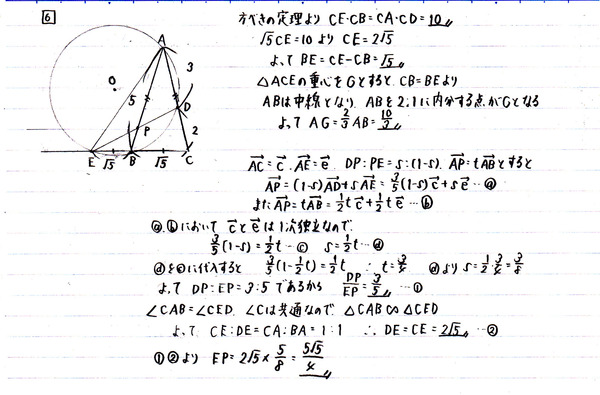 6
方べきの定理より CE・CB=CA・CD=10
√5CE=10より CE=2√5
よって BE=CE-CB=√5
△ACEの重心をGとすると、CB=BEより
ABは中線となり ABを2:1に内分する点がGとなる
よって AG=2/3 AB=10/3
A
3
O
5
D
P
2
E √5 B √5 C
AC=c, AE=e, DP:PE=s:(1-s), AP=tABとすると
AP=(1-s)AD+sAE=3/5(1-s)c+se…ⓐ
また AP=tAB=1/2tc+1/2te…ⓑ
ⓐ,ⓑにおいて cとeは1次独立なので
3/5(1-s)=1/2t…ⓒ s=1/2t…ⓓ
ⓓをⓒに代入すると 3/5(1-1/2t)=1/2t ∴t=3/4 ⓓより s=1/2・3/4=3/8
よって DP:EP=3:5であるから DP/EP=3/5…①
∠CAB=∠CED, ∠Cは共通なので △CAB∽△CED
よって CE:DE=CA:BA=1:1 ∴DE=CE=2√5…②
①②より EP=2√5×5/8=5√5/4